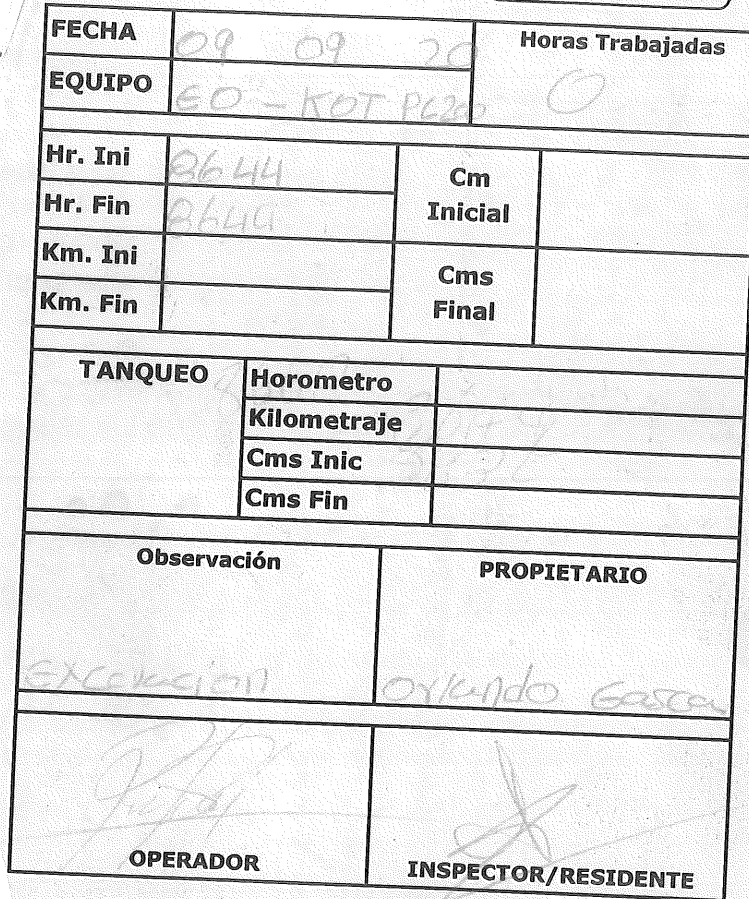 FECHA 09 09 20 Horas Trabajadas
EQUIPO EO - KOT PC200 0
Hr. Ini 8644 Cm Inicial
Hr. Fin 8649
Km. Ini Cms Final
Km. Fin
TANQUEO Horometro
Kilometraje
Cms Inic
Cms Fin
Observación PROPIETARIO
Excavacion Orlando Gasca
OPERADOR INSPECTOR/RESIDENTE